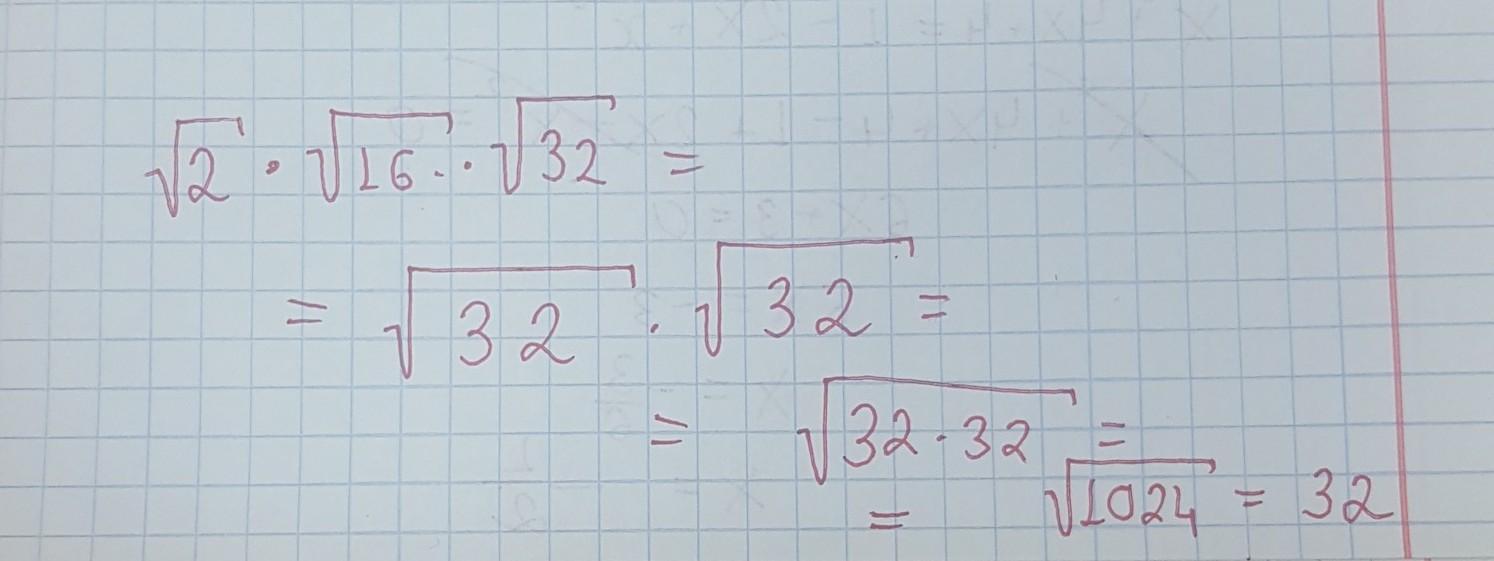 √2 · √16 · √32 =
= √32 · √32 =
= √32·32 =
= √1024 = 32